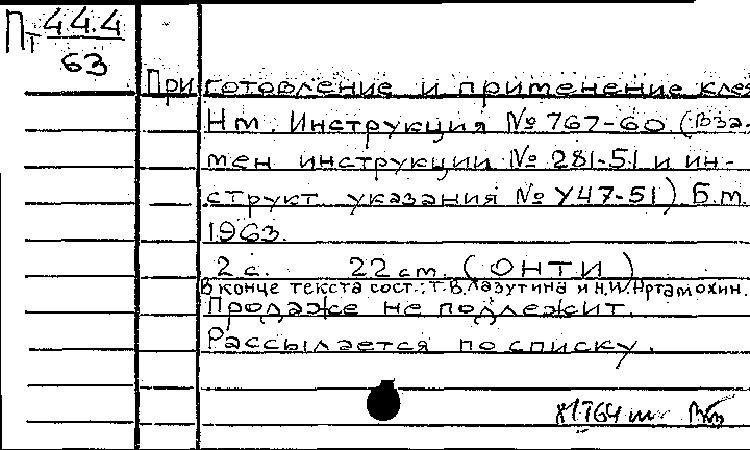 Пт 44.4
63
Приготовление и применение клея
Нт. Инструкция № 767-60 (Вза-
мен инструкции № 281-51 и ин-
структ. указания № У47-51) Б.м.
1963.
2 с. 22 см. (ОНТИ)
В конце текста сост.: Т.В.Лазутина и Н.И.Артамохин.
Продаже не подлежит.
Рассылается по списку.